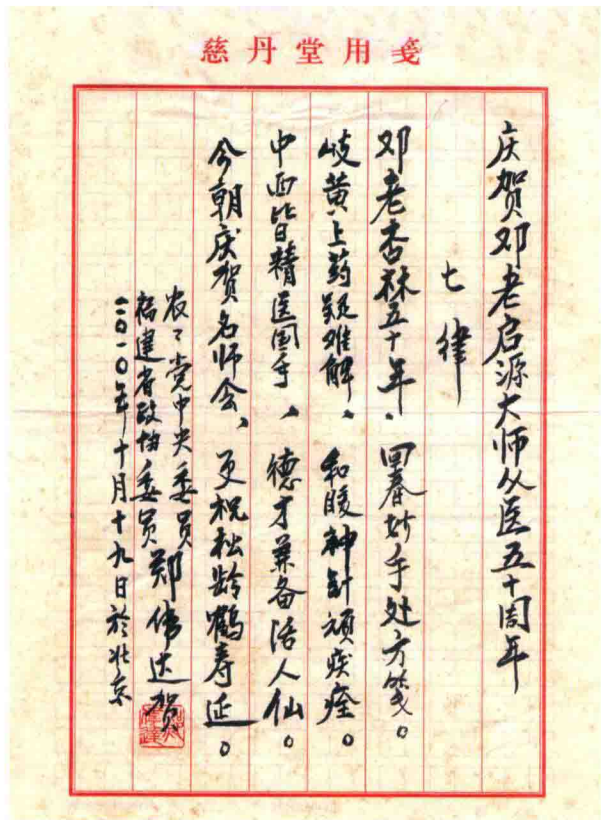 慈丹堂用箋
庆贺邓老启源大师从医五十周年
七律
邓老杏林五十年、回春妙手处方笺。
岐黄上药疑难解、和暖神针顽疾痊。
中西皆精医国手、德才兼备活人仙。
今朝庆贺名师会、更祝松龄鹤寿延。
农工党中央委员
福建省政协委员
郑伟达贺
二〇一〇年十月十九日於北京